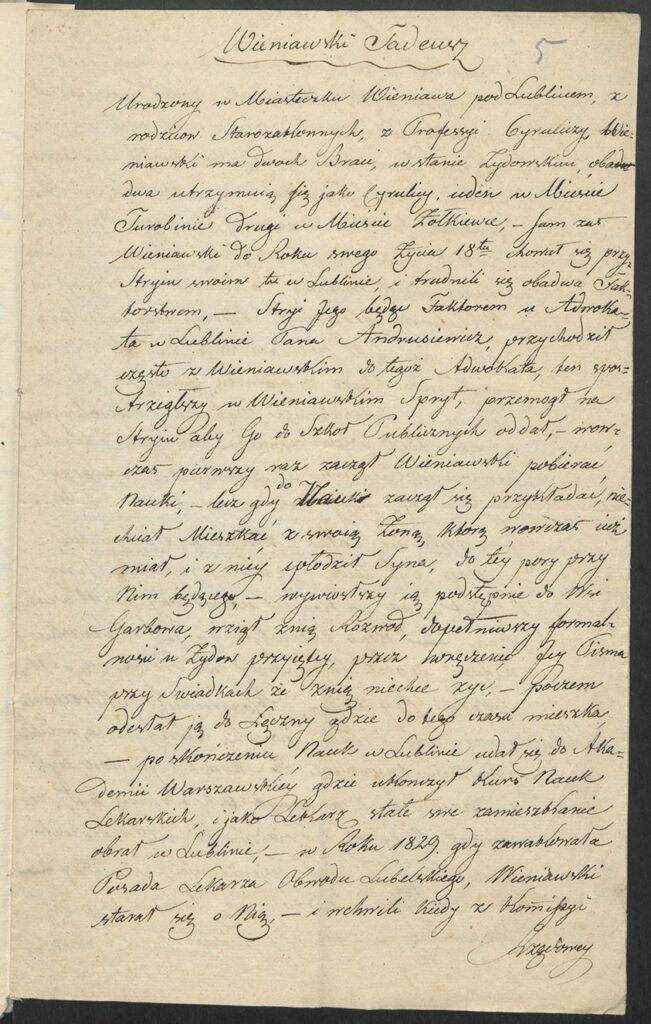 Wieniawski Tadeusz
5
Urodzony w Miasteczku Wieniawa pod Lublinem, z
rodziców Starozakonnych, z Professyi Cyruliczy, Wie-
niawski ma dwóch Braci, w stanie Żydowskim, obad
dwa utrzymuią się jako Cyrulicy, ieden w Mieście
Turobinie drugi w Mieście Żołkiewce, – Sam zaś
Wieniawski do Roku swego Życia 18tu chował się przy
Stryiu swoim tu w Lublinie, i trudnili się obadwa Fak-
torstwem, – Stryi Jego będąc Faktorem u Adwoka-
ta w Lublinie Pana Andrusiewicz, przychodził
często z Wieniawskim do tegoż Adwokata, ten spos-
trzegłszy w Wieniawskim Spryt, przemogł na
Stryiu aby Go do Szkoł Publicznych oddał, – wow-
czas pierwszy raz zaczął Wieniawski pobierać
Nauki, – lecz gdy do Nauki zaczął się przykładać, nie-
chciał Mieszkać z swoią Żoną, którą wowczas iuż
miał, i z niey spłodził Syna, do tey pory przy
Nim będącego, – wywiozłszy ią podstępnie do Wsi
Garbowa, wziął z nią Rozwod, dopełniwszy formal-
ności u Żydow przyiętey, przez wręczenie Jey Pisma
przy Swiadkach że z nią niechce żyć, – poczem
odesłał ją do Łęczny gdzie do tego czasu mieszka,
– po skończeniu Nauk w Lublinie udał się do Aka-
demii Warszawskiéy gdzie ukończył Kurs Nauk
Lekarskich, i jako Lekarz stałe swe zamieszkanie
obrał w Lublinie, – w Roku 1829. gdy zawakowała
Posada Lekarza Obwodu Lubelskiego, Wieniawski
starał się o Nią, – i w chwili kiedy z Kommissyi
Rządowey